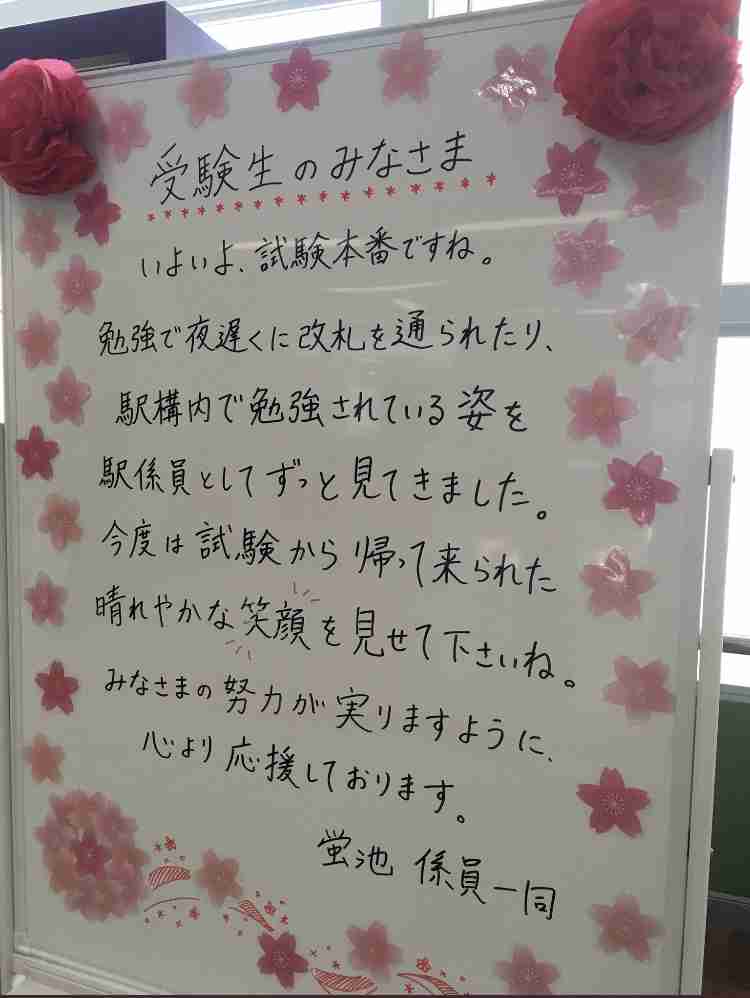 受験生のみなさま
いよいよ、試験本番ですね。
勉強で夜遅くに改札を通られたり、
駅構内で勉強されている姿を
駅係員としてずっと見てきました。
今度は試験から帰って来られた
晴れやかな笑顔を見せて下さいね。
みなさまの努力が実りますように、
心より応援しております。
蛍池 係員一同